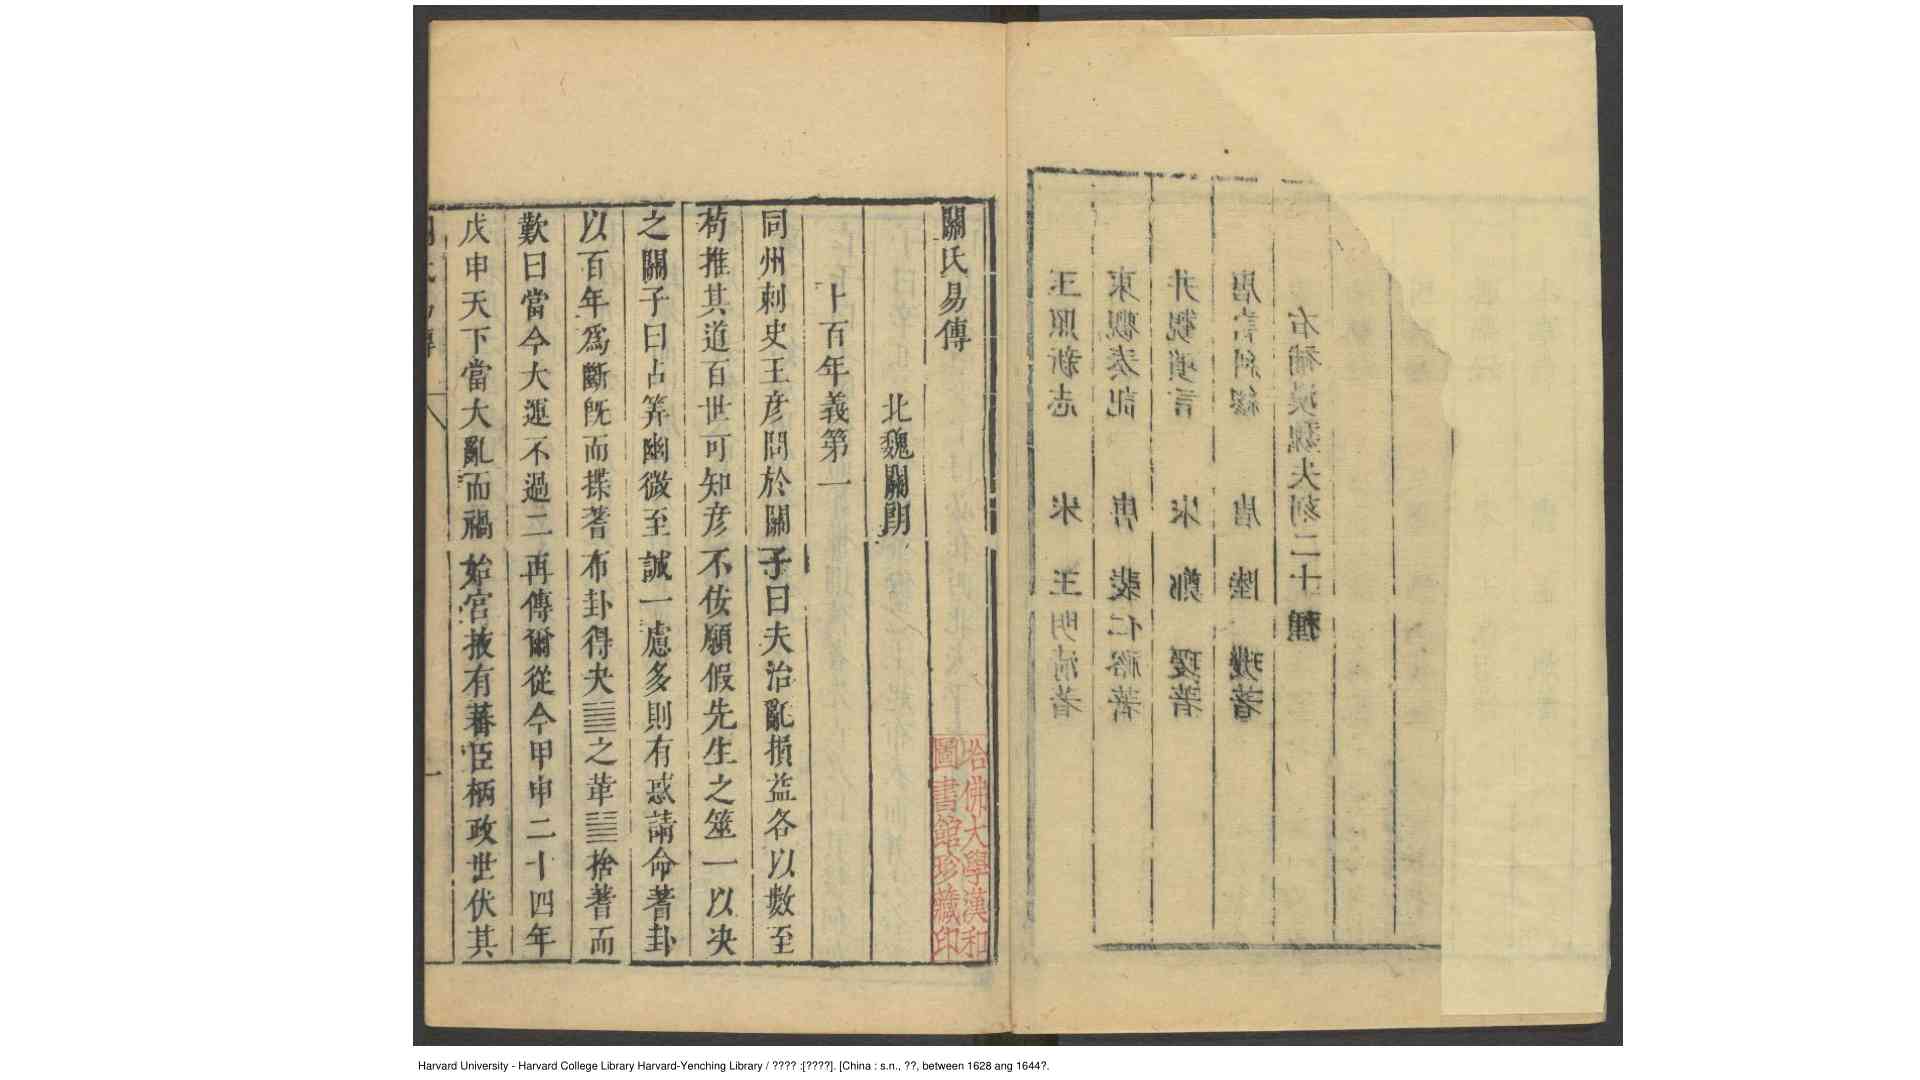 玉照新志 宋 王明清著
東觀奏記 唐 裴 裕著
井觀瑣言 宋 鄭 瑗著
唐 陸 璣著
右補漢魏 刻二十種
關氏易傳
哈佛大學漢和
圖書館珍藏印
北魏關朗
卜百年義第一
同州刺史王彥問於關子曰夫治亂損益各以數至
苟推其道百世可知彥不佞願假先生之筮一以决
之關子曰占筭幽微至誠一慮多則有惑請命蓍卦
以百年爲斷旣而揲蓍布卦得夬䷪之革䷰捨蓍而
歎曰當今大運不過二再傳爾從今甲申二十四年
戊申天下當大亂而禍始宮掖有蕃臣柄政世伏其
Harvard University - Harvard College Library Harvard-Yenching Library / ???? :[????]. [China : s.n., ??, between 1628 ang 1644?.